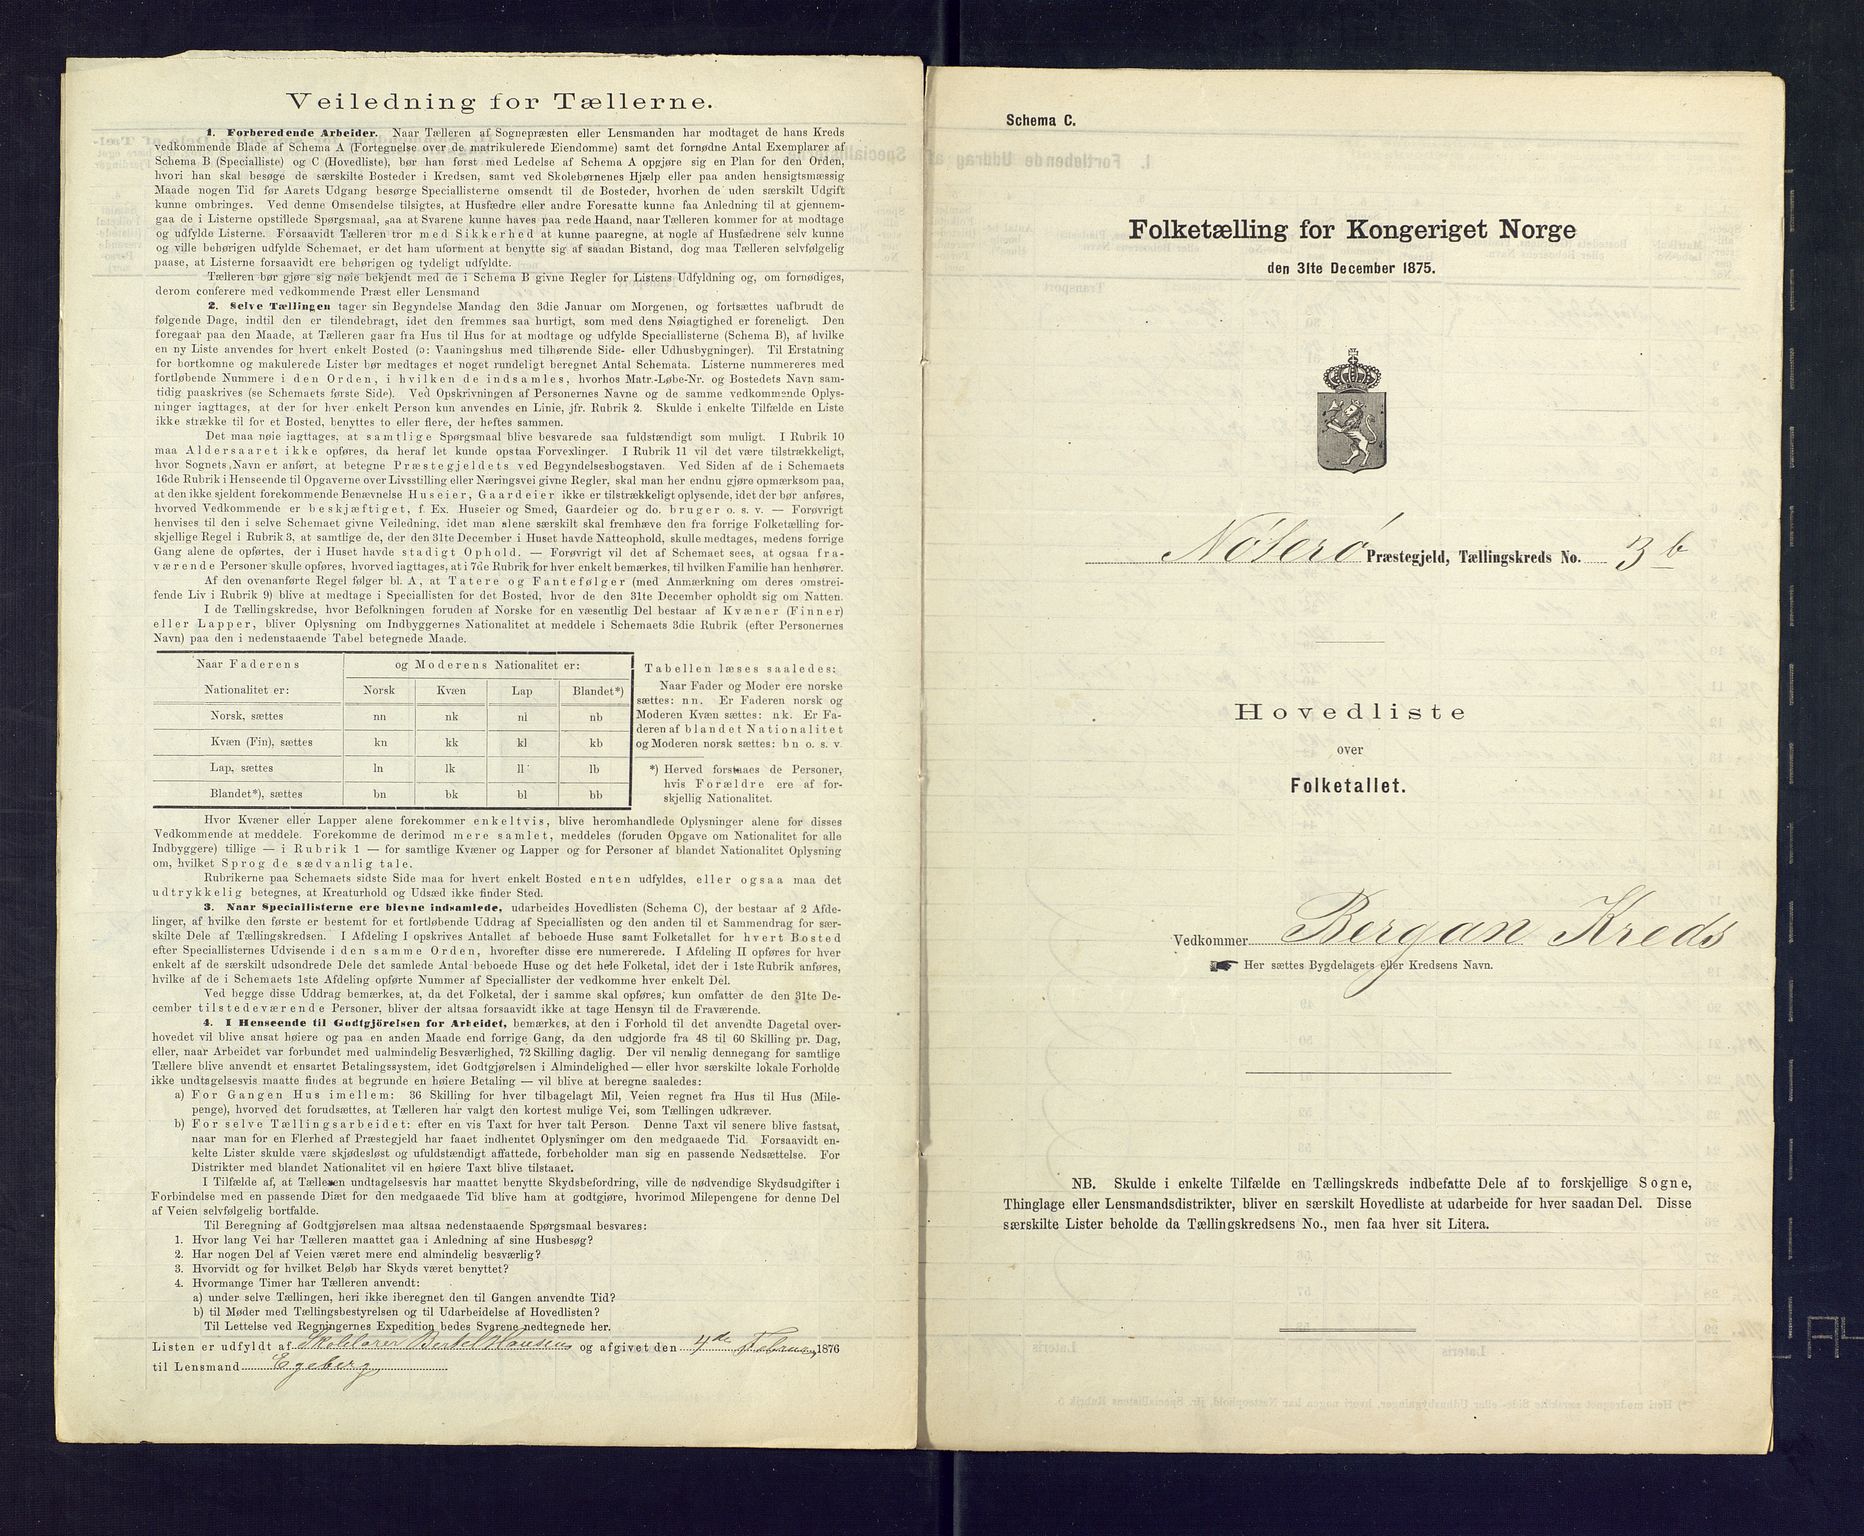 Veiledning for Tællerne.
1. Forberedende Arbeider. Naar Tælleren af Sognepræsten eller Lensmanden har modtaget de hans Kreds
vedkommende Blade af Schema A (Fortegnelse over de matrikulerede Eiendomme) samt det fornødne Antal Exemplarer af
Schema B (Specialliste) og C (Hovedliste), bør han først med Ledelse af Schema A opgjøre sig en Plan for den Orden,
hvori han skal besøge de særskilte Bosteder i Kredsen, samt ved Skolebørnenes Hjælp eller paa anden hensigtsmæssig
Maade nogen Tid før Aarets Udgang besørge Speciallisterne omsendt til de Bosteder, hvorhen de uden særskilt Udgift
kunne ombringes. Ved denne Omsendelse tilsigtes, at Husfædre eller andre Foresatte kunne faa Anledning til at gjennem-
gaa de i Listerne opstillede Spørgsmaal, saa at Svarene kunne haves paa rede Haand, naar Tælleren kommer for at modtage
og udfylde Listerne. Forsaavidt Tælleren tror med Sikkerhed at kunne paaregne, at nogle af Husfædrene selv kunne
og ville behørigen udfylde Schemaet, er det ham uforment at benytte sig af saadan Bistand, dog maa Tælleren selvfølgelig
paase, at Listerne forsaavidt ere behørigen og tydeligt udfyldte.
Tælleren bør gjøre sig nøie bekjendt med de i Schema B givne Regler for Listens Udfyldning og, om fornødiges,
derom conferere med vedkommende Præst eller Lensmand
2. Selve Tællingen tager sin Begyndelse Mandag den 3die Januar om Morgenen, og fortsættes uafbrudt de
følgende Dage, indtil den er tilendebragt, idet den fremmes saa hurtigt, som med dens Nøiagtighed er foreneligt. Den
foregaar paa den Maade, at Tælleren gaar fra Hus til Hus for at modtage og udfylde Speciallisterne (Schema B), af hvilke
en ny Liste anvendes for hvert enkelt Bosted (ɔ: Vaaningshus med tilhørende Side- eller Udhusbygninger). Til Erstatning
for bortkomne og makulerede Lister bør medtages et noget rundeligt beregnet Antal Schemata. Listerne nummereres med
fortløbende Nummere i den Orden, i hvilken de indsamles, hvorhos Matr.-Løbe-Nr. og Bostedets Navn sam-
tidig paaskrives (se Schemaets første Side). Ved Opskrivningen af Personernes Navne og de samme vedkommende Oplys-
ninger iagttages, at der for hver enkelt Person kun anvendes en Linie, jfr. Rubrik 2. Skulde i enkelte Tilfælde en Liste
ikke strække til for et Bosted, benyttes to eller flere, der heftes sammen.
Det maa nøie iagttages, at samtlige Spørgsmaal blive besvarede saa fuldstændigt som muligt. I Rubrik 10
maa Aldersaaret ikke opføres, da heraf let kunde opstaa Forvexlinger. I Rubrik 11 vil det være tilstrækkeligt,
hvor Sognets Navn er anført, at betegne Præstegjeldets ved Begyndelsesbogstaven. Ved Siden af de i Schemaets
16de Rubrik i Henseende til Opgaverne over Livsstilling eller Næringsvei givne Regler, skal man her endnu gjøre opmærksom paa,
at den ikke sjeldent forekommende Benævnelse Huseier, Gaardeier ikke er tilstrækkeligt oplysende, idet der bør anføres,
hvorved Vedkommende er beskjæftiget, f. Ex. Huseier og Smed, Gaardeier og do. bruger o. s. v. — Forøvrigt
henvises til den i selve Schemaet givne Veiledning, idet man alene særskilt skal fremhæve den fra forrige Folketælling for-
skjellige Regel i Rubrik 3, at samtlige de, der den 31te December i Huset havde Natteophold, skulle medtages, medens forrige
Gang alene de opførtes, der i Huset havde stadigt Ophold. — Forøvrigt vil det af Schemaet sees, at ogsaa fra-
værende Personer skulle opføres, hvorved iagttages, at i 7de Rubrik for hver enkelt bemærkes, til hvilken Familie han henhører.
Af den ovenanførte Regel følger bl. A, at Tatere og Fantefølger (med Anmærkning om deres omstrei-
fende Liv i Rubrik 9) blive at medtage i Speciallisten for det Bosted, hvor de den 31te December opholdt sig om Natten.
I de Tællingskredse, hvor Befolkningen foruden af Norske for en væsentlig Del bestaar af Kvæner (Finner)
eller Lapper, bliver Oplysning om Indbyggernes Nationalitet at meddele i Schemaets 3die Rubrik (efter Personernes
Navn) paa den i nedenstaaende Tabel betegnede Maade.
Naar Faderens og Moderens Nationalitet er:
Nationalitet er: Norsk Kvæn Lap Blandet*)
Norsk, sættes nn nk nl nb
Kvæn (Fin), sættes kn kk kl kb
Lap, sættes ln lk ll lb
Blandet*), sættes bn bk bl bb
Tabellen læses saaledes:
Naar Fader og Moder ere norske
sættes: nn. Er Faderen norsk og
Moderen Kvæn sættes: nk. Er Fa-
deren af blandet Nationalitet
og Moderen norsk sættes: bn o. s. v.
*) Herved forstaaes de Personer,
hvis Forældre ere af for-
skjellig Nationalitet.
Hvor Kvæner eller Lapper alene forekommer enkeltvis, blive heromhandlede Oplysninger alene for disses
Vedkommende at meddele. Forekomme de derimod mere samlet, meddeles (foruden Opgave om Nationalitet for alle
Indbyggere) tillige — i Rubrik 1 — for samtlige Kvæner og Lapper og for Personer af blandet Nationalitet Oplysning
om, hvilket Sprog de sædvanlig tale.
Rubrikerne paa Schemaets sidste Side maa for hvert enkelt Bosted enten udfyldes, eller ogsaa maa det
udtrykkelig betegnes, at Kreaturhold og Udsæd ikke finder Sted.
3. Naar Speciallisterne ere blevne indsamlede, udarbeides Hovedlisten (Schema C), der bestaar af 2 Afde-
linger, af hvilke den første er bestemt for et fortløbende Uddrag af Speciallisten og den anden til et Sammendrag for sær-
skilte Dele af Tællingskredsen. I Afdeling I opskrives Antallet af beboede Huse samt Folketallet for hvert Bosted
efter Speciallisternes Udvisende i den samme Orden, hvorefter disse ere numererede. I Afdeling II opføres for hver
enkelt af de særskilt udsondrede Dele det samlede Antal beboede Huse og det hele Folketal, idet der i 1ste Rubrik anføres,
hvilke af de i Schemaets 1ste Afdeling opførte Nummer af Speciallister der vedkomme hver enkelt Del.
Ved begge disse Uddrag bemærkes, at, da det Folketal, der i samme skal opføres, kun omfatter de den 31te De-
cember tilstedeværende Personer, bliver der altsaa forsaavidt ikke at tage Hensyn til de Fraværende.
4. I Henseende til Godtgjörelsen for Arbeidet, bemærkes, at den i Forhold til det anvendte Dagetal over-
hovedet vil blive ansat høiere og paa en anden Maade end forrige Gang, da den udgjorde fra 48 til 60 Skilling pr. Dag,
eller, naar Arbeidet var forbundet med ualmindelig Besværlighed, 72 Skilling daglig. Der vil nemlig dennegang for samtlige
Tællere blive anvendt et ensartet Betalingssystem, idet Godtgjørelsen i Almindelighed — eller hvor særskilte lokale Forholde
ikke undtagelsesvis maatte findes at begrunde en høiere Betaling — vil blive at beregne saaledes:
a) For Gangen Hus imellem: 36 Skilling for hver tilbagelagt Mil, Veien regnet fra Hus til Hus (Mile-
penge), hvorved det forudsættes, at Tælleren har valgt den kortest mulige Vei, som Tællingen udkræver.
b) For selve Tællingsarbeidet: efter en vis Taxt for hver talt Person. Denne Taxt vil senere blive fastsat,
naar man for en Flerhed af Præstegjeld har faaet indhentet Oplysninger om den medgaaede Tid. Forsaavidt en-
kelte Lister skulde være skjødesløst og ufuldstændigt affattede, forbeholder man sig en passende Nedsættelse. For
Distrikter med blandet Nationalitet vil en høiere Taxt blive tilstaaet.
I Tilfælde af, at Tælleren undtagelsesvis har maattet benytte Skydsbefordring, ville de nødvendige Skydsudgifter i
Forbindelse med en passende Diæt for den medgaaede Tid blive ham at godtgjøre, hvorimod Milepengene for denne Del
af Veien selvfølgelig bortfalde.
Til Beregning af Godtgjørelsen maa altsaa nedenstaaende Spørgsmaal besvares:
1. Hvor lang Vei har Tælleren maattet gaa i Anledning af sine Husbesøg?
2. Har nogen Del af Veien været mere end almindelig besværlig?
3. Hvorvidt og for hvilket Beløb har Skyds været benyttet?
4. Hvormange Timer har Tælleren anvendt:
a) under selve Tællingen, heri ikke iberegnet den til Gangen anvendte Tid?
b) til Møder med Tællingsbestyrelsen og til Udarbeidelse af Hovedlisten?
Til Lettelse ved Regningernes Expedition bedes Svarene nedtegnede her.
Listen er udfyldt af Skolelærer Bertel Hansen og afgivet den 4de Februar 1876
til Lensmand Egeberg
Schema C.
Folketælling for Kongeriget Norge
den 31te December 1875.
Nøterø Præstegjeld, Tællingskreds No. 3b
Hovedliste
over
Folketallet.
Vedkommer Bergan Kreds
Her sættes Bygdelagets eller Kredsens Navn.
NB. Skulde i enkelte Tilfælde en Tællingskreds indbefatte Dele af to forskjellige Sogne,
Thinglage eller Lensmandsdistrikter, bliver en særskilt Hovedliste at udarbeide for hver saadan Del. Disse
særskilte Lister beholde da Tællingskredsens No., men faa hver sit Litera.